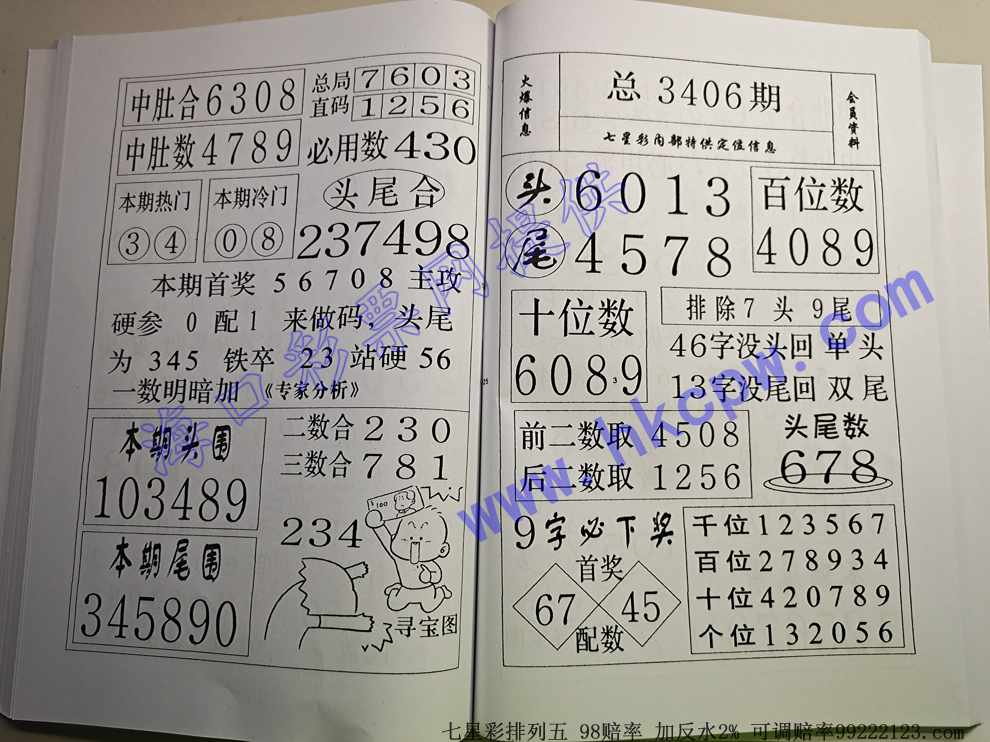 中肚合6308
总局 7603
直码 1256
中肚数4789
必用数430
本期热门
③④
本期冷门
⓪⑧
头尾合
237498
本期首奖 5 6 7 0 8 主攻
硬参 0 配1 来做码，头尾
为 345 铁卒 23 站硬 56
一数明暗加 《专家分析》
本期头围
103489
二数合 2 3 0
三数合 7 8 1
本期尾围
345890
234
$100
寻宝图
火爆信息
总 3406期
七星彩内部特供定位信息
会员资料
头 6013
尾 4578
百位数
4089
十位数
6089
排除7 头 9尾
46字没头回 单 头
13字没尾回 双 尾
前二数取 4508
后二数取 1256
头尾数
678
9字必下奖
首奖
67 45
配数
千位123567
百位278934
十位420789
个位132056
海口彩票网提供
www.hkcpw.com
七星彩排列五 98赔率 加反水2% 可调赔率99222123.com